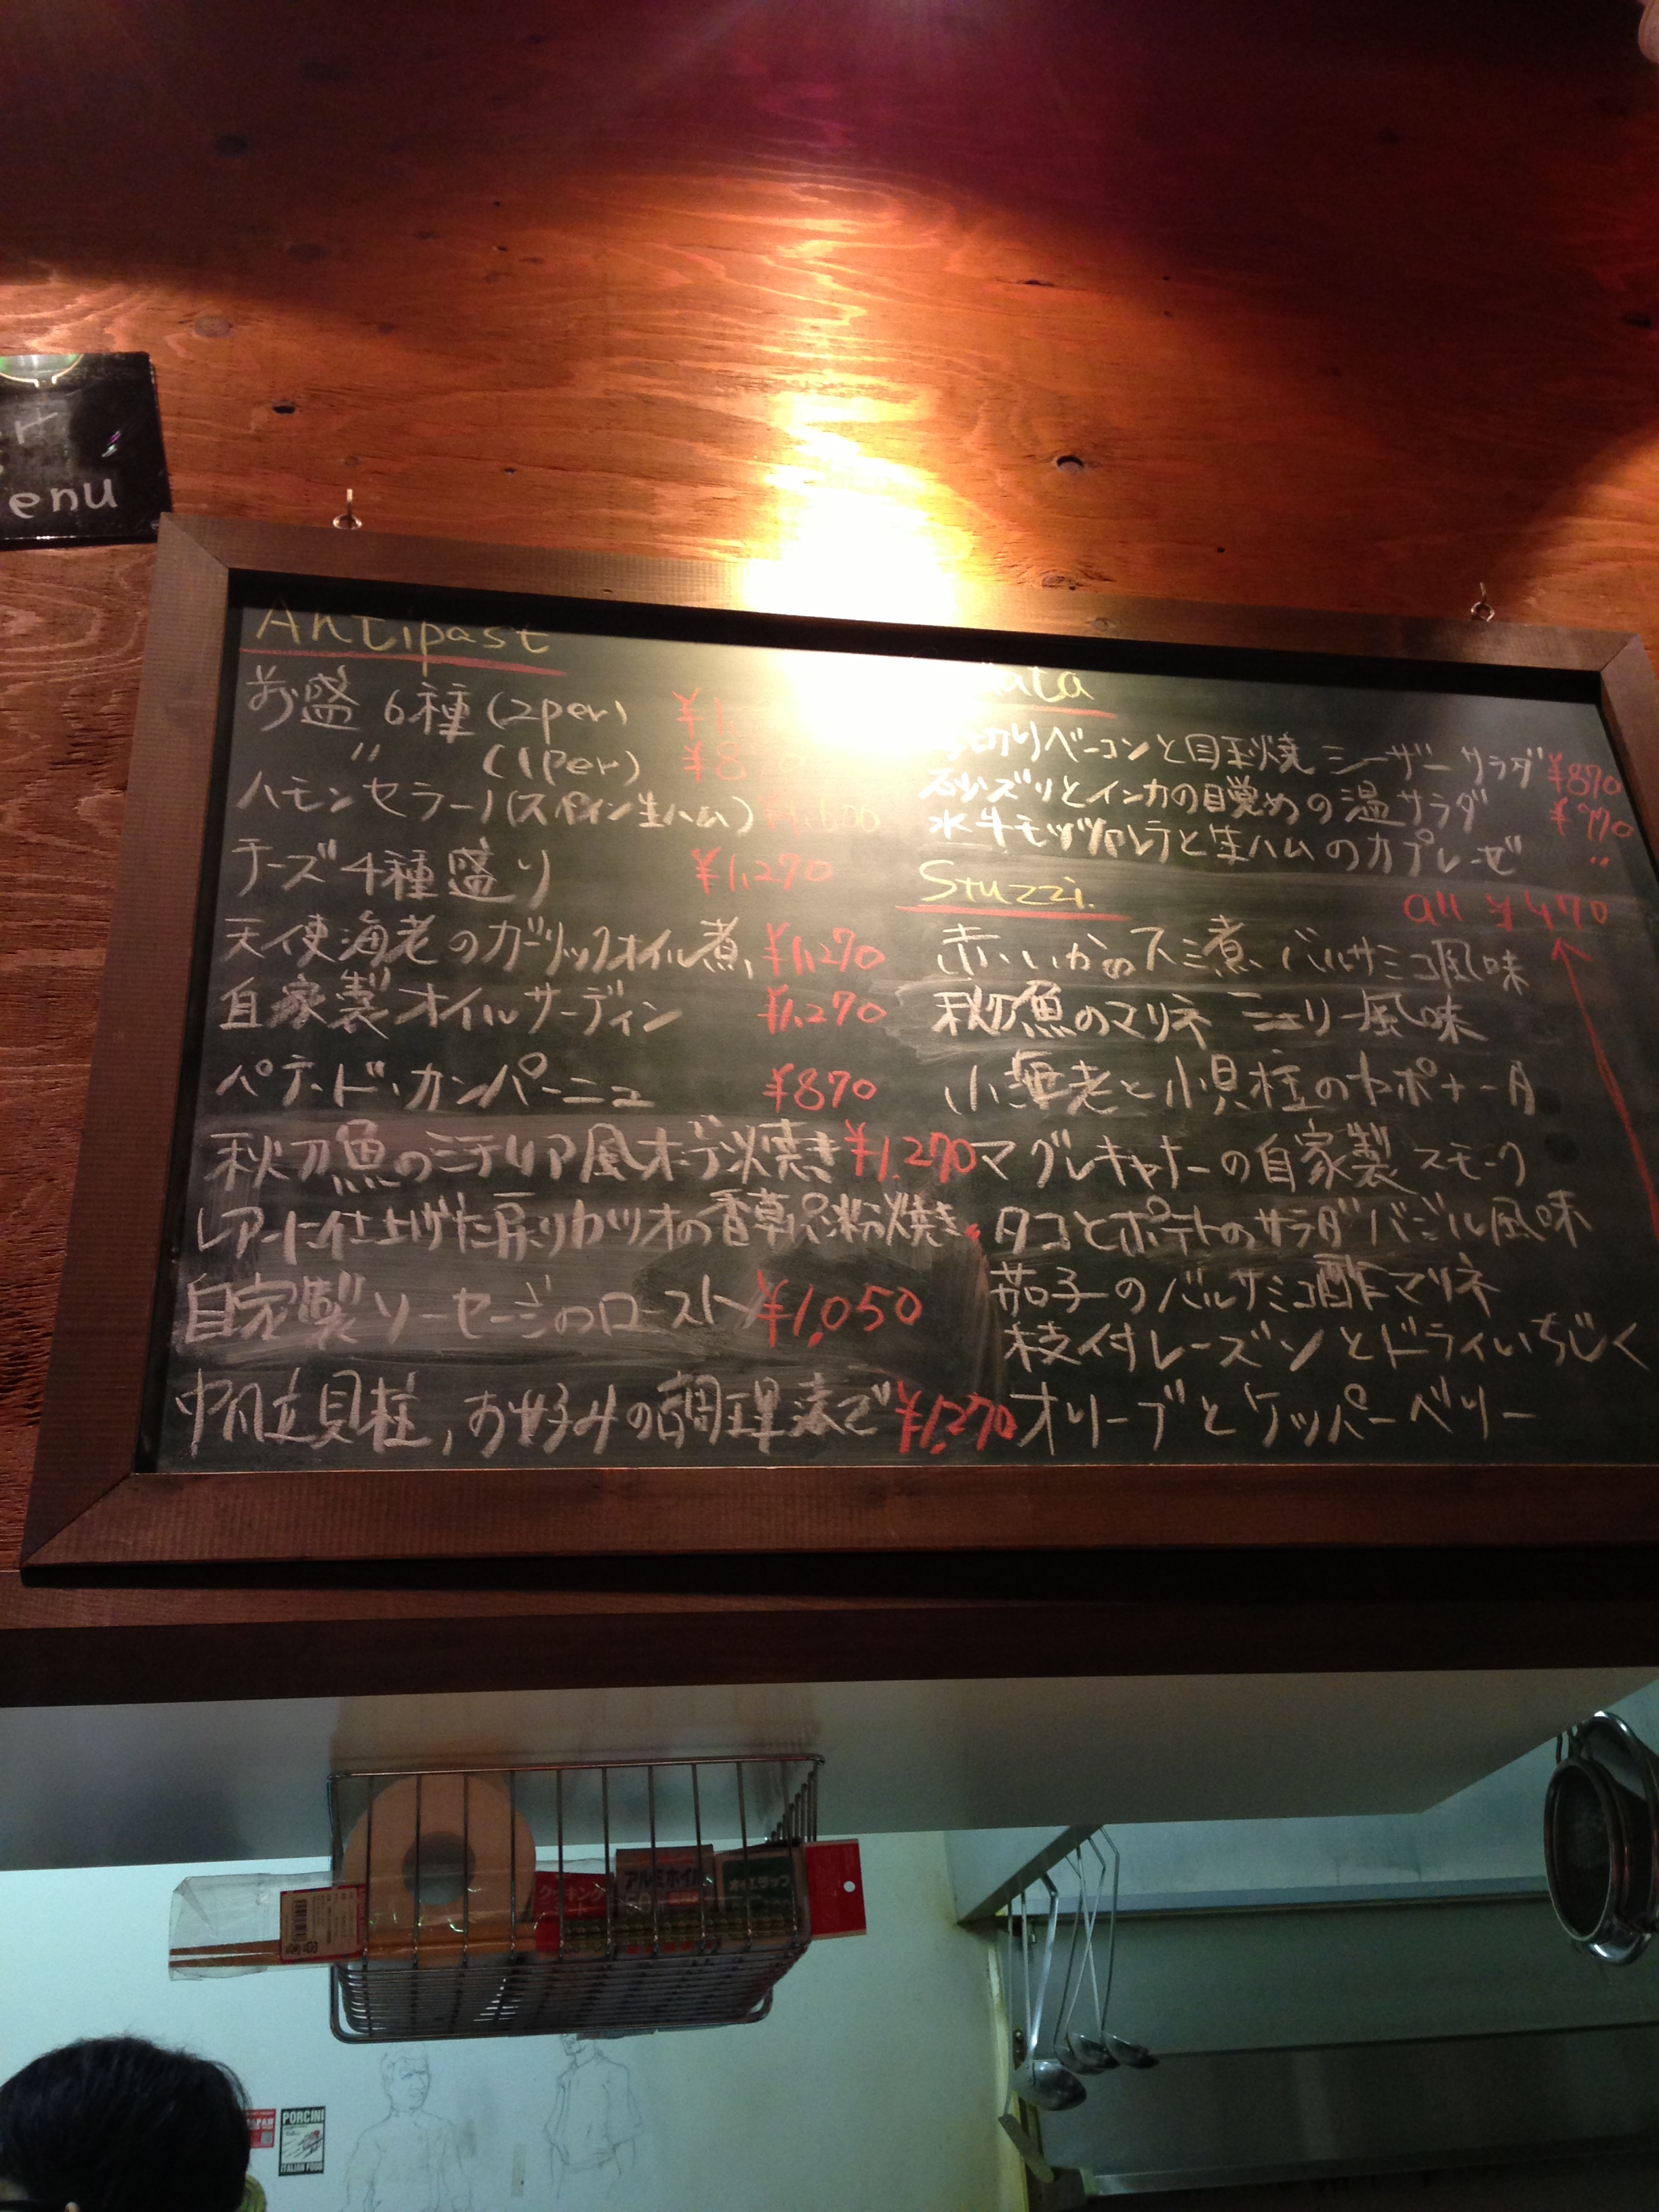 enu
Antipast
お盛 6種 (2per) ¥1,
〃 (1per) ¥8
ハモンセラーノ(スペイン生ハム) ¥1,600
チーズ4種盛り ¥1,270
天使海老のガーリックオイル煮 ¥1,270
自家製オイルサーディン ¥1,270
パテ・ド・カンパーニュ ¥870
秋刀魚のミチリア風オーブン焼き ¥1,270
レアーに仕上げた戻りカツオの香草パン粉焼き
自家製ソーセージのロースト ¥1,050
帆立貝柱,お好みの調理法で ¥1,270
ata
切りベーコンと目玉焼 シーザーサラダ ¥870
砂ズリとインカの目覚めの温サラダ ¥770
水牛モッツァレラと生ハムのカプレーゼ 〃
Stuzzi. all ¥470
赤いかのスミ煮 バルサミコ風味
秋刀魚のマリネ シェリー風味
小海老と小貝柱のカポナータ
マグレキャナーの自家製スモーク
タコとポテトのサラダバジル風味
茄子のバルサミコ酢マリネ
枝付レーズンとドライいちじく
オリーブとケッパーベリー
クッキング
アルミホイル
PORCINI
ITALIAN FOOD